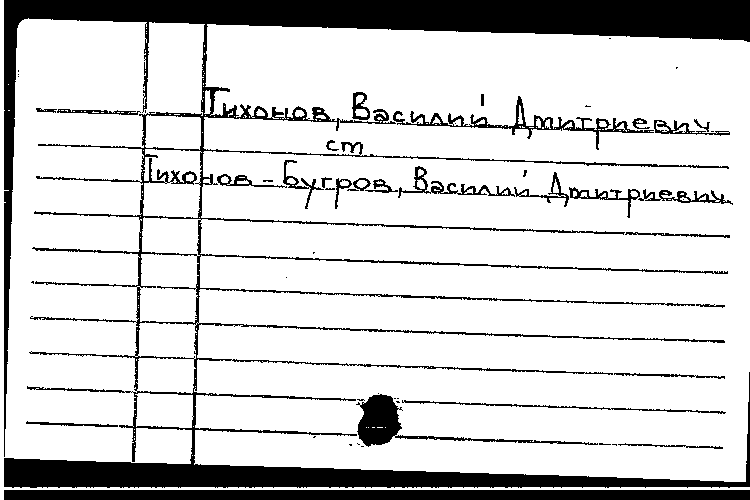 Тихонов, Василий Дмитриевич
ст
Тихонов-Бугров, Василий Дмитриевич